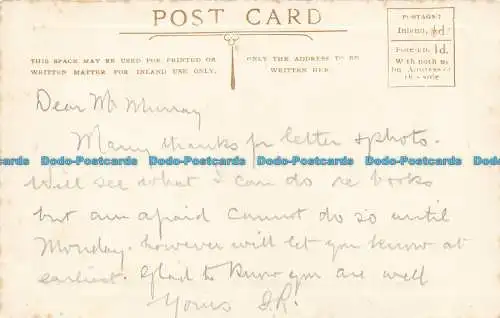 POST CARD
THIS SPACE MAY BE USED FOR PRINTED OR
WRITTEN MATTER FOR INLAND USE ONLY.
ONLY THE ADDRESS TO BE
WRITTEN HERE.
POSTAGE:
Inland, ½d.
Foreign, 1d.
With nothing
but Address on
this side
Dear Mr Murray
Many thanks for letter & photo.
Will see what I can do re books
but am afraid cannot do so until
Monday. however will let you know at
earliest. Glad to know you are well
Yours J.R.
Dodo-Postcards Dodo-Postcards Dodo-Postcards Dodo-Postcards Dodo-Postcards